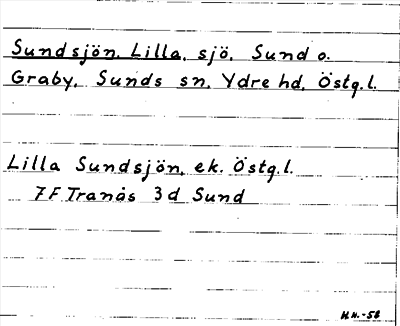 Sundsjön, Lilla, sjö, Sund o.
Graby, Sunds sn, Ydre hd, Östg.l.
Lilla Sundsjön, ek. Östg.l.
7F Tranås 3d Sund
H.H.-58